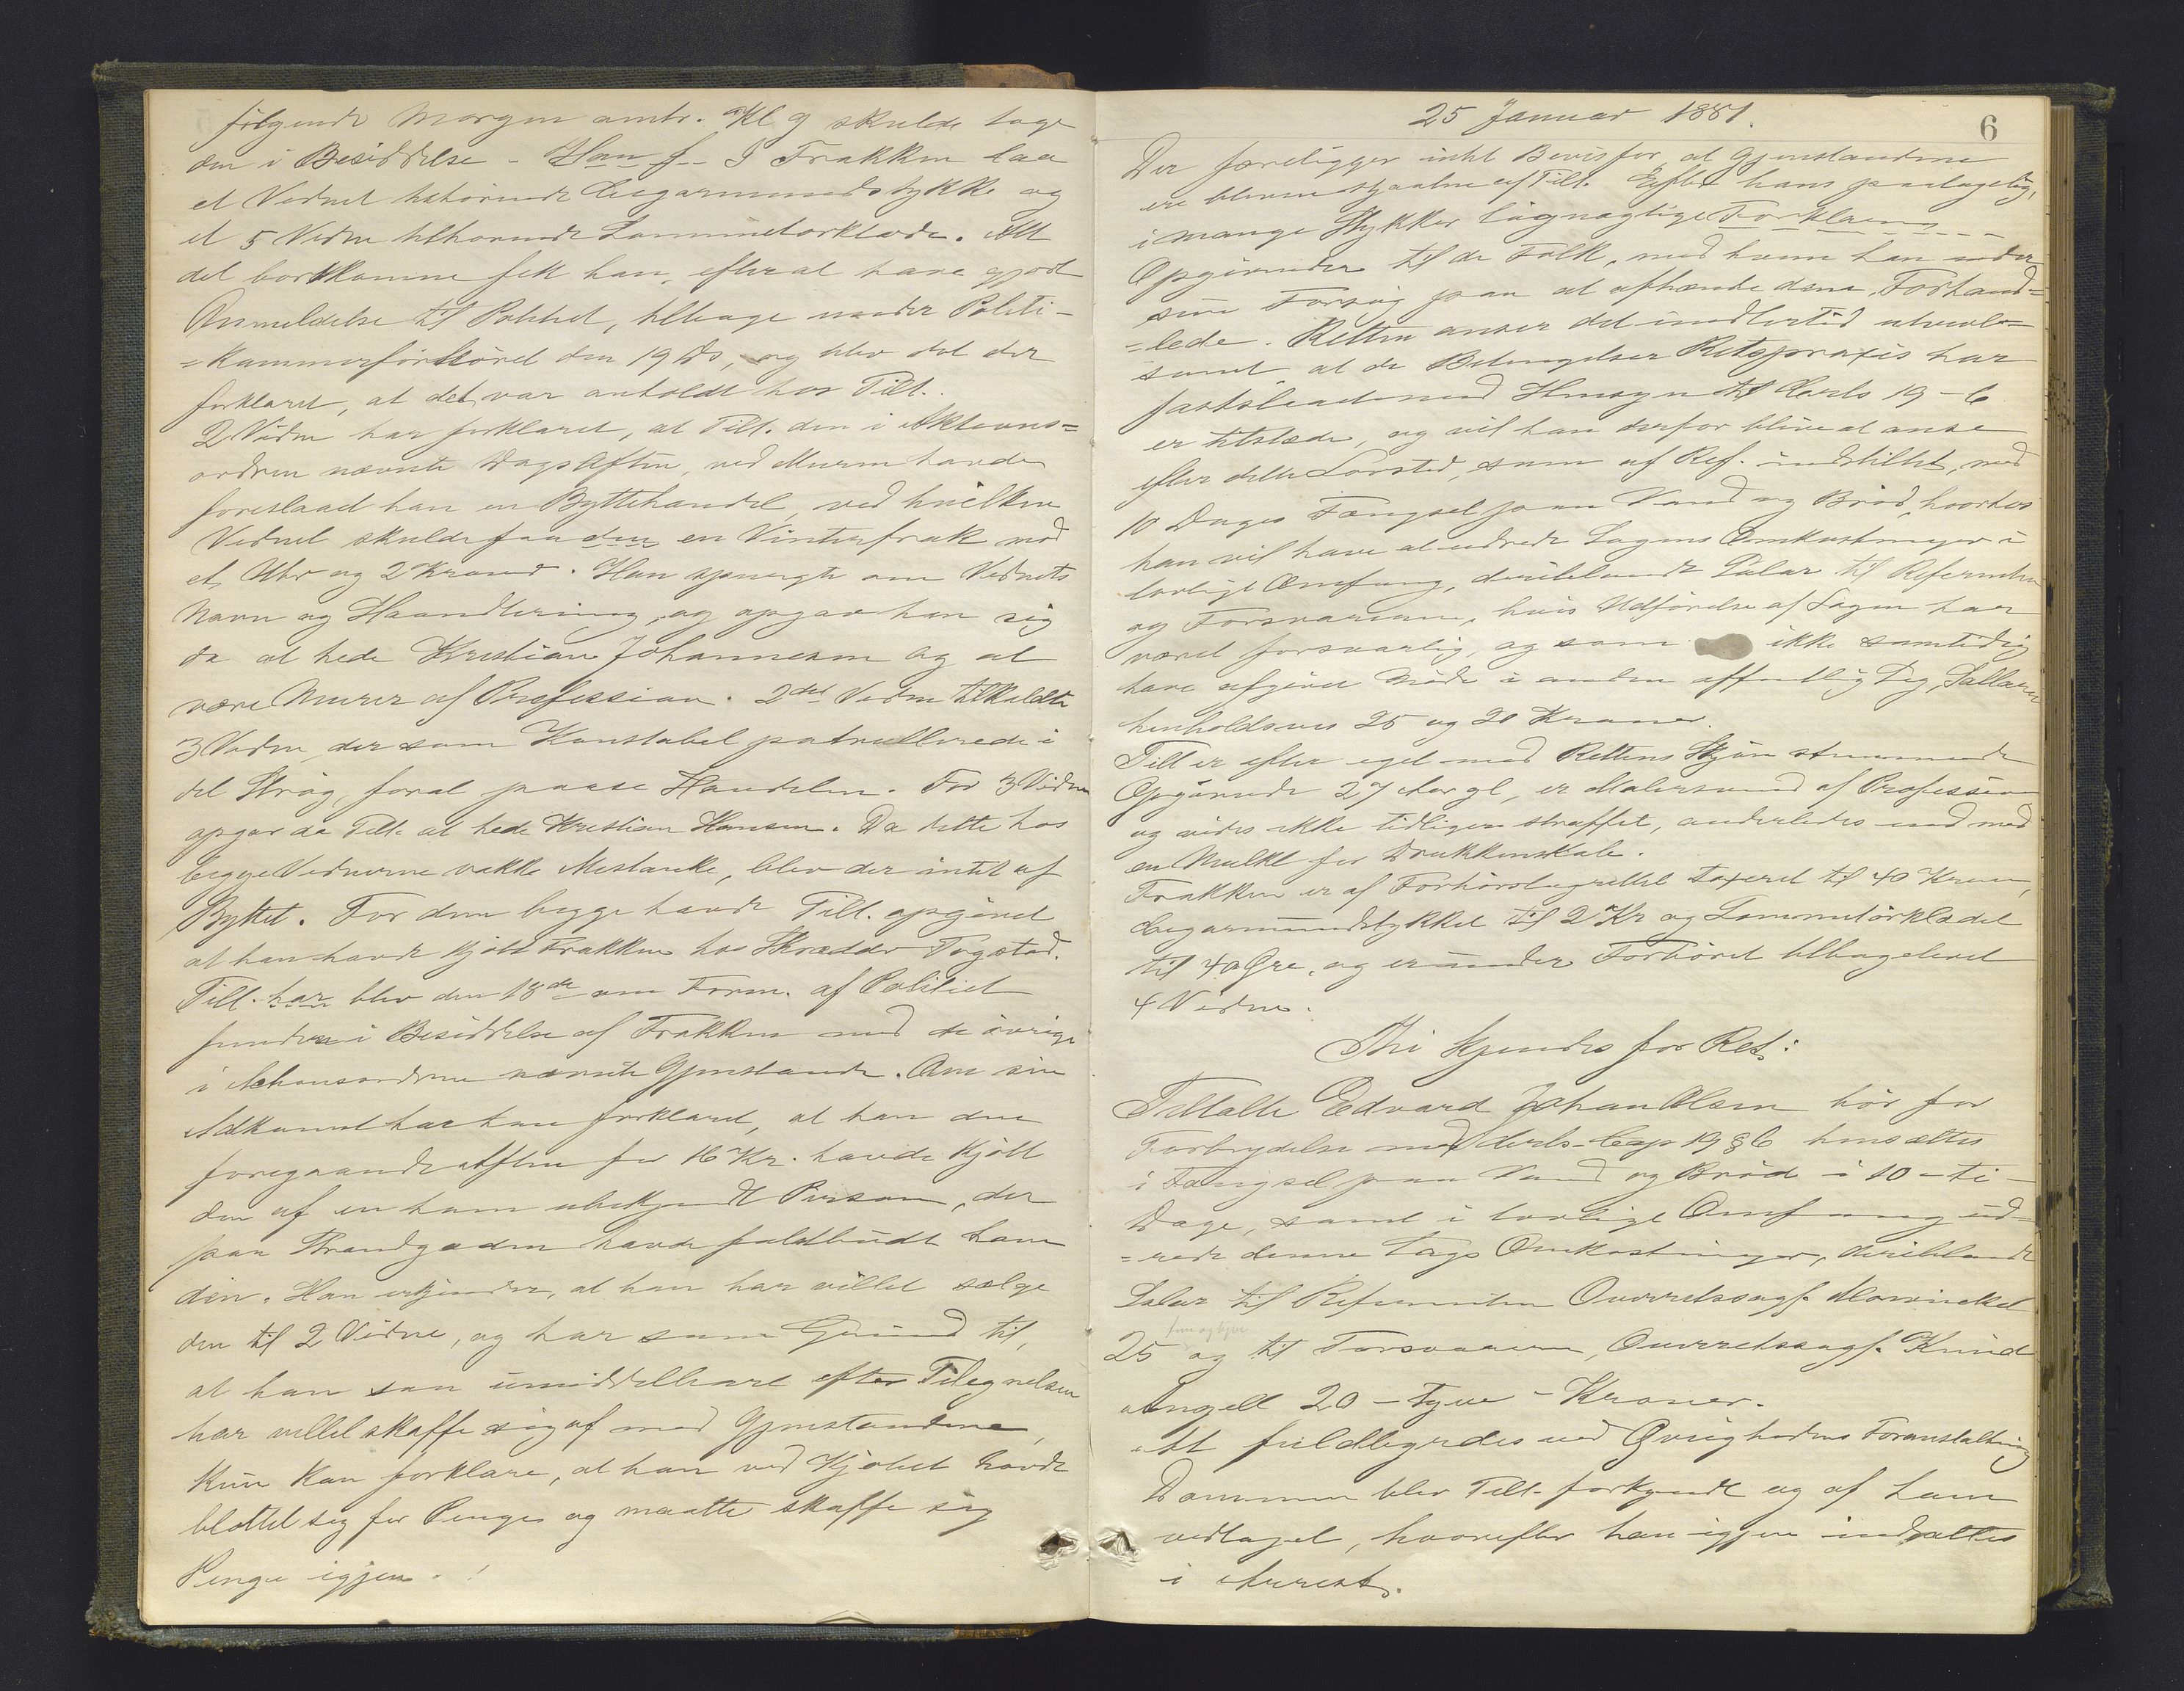 følgende Morgen omtr. Kl 9 skulde tage
den i Besiddelse - Han f- I Frakken laa
et Vidnet tilhørende Cigarmundstykke og
et 5 Vidne tilhørende Lommetørklæde. Alt
det bortkomne fik han, efterat have gjort
Anmeldelse til Politiet, tilbage under Politi-
=kammerforhøret den 19 ds, og blev det der
forklaret, at det var anholdt hos Tilt.
2 Vidne har forklaret, at Tilt. den i Aktions=
ordren nævnte Dags Aften, ved Muren havde
foreslaaet han en Byttehandel, ved hvilken
Vidnet skulde faa den en Vinterfrak mod
et Uhr og 2 Kroner. Han spurgte om Vidnets
Navn og Haandtering, og opgav han sig
da at hede Kristian Johannesen og at
være Murer af Profession. 2det Vidne tilkaldte
3 Vidne, der som Konstabel patrullerede i
det Strøg, forat paase Handelen. For 3 Vidne
opgav da Tilt. at hede Kristian Hansen. Da dette hos
begge Vidnerne vakte Mistanke, blev der intet af
Byttet. For dem begge havde Tilt. opgivet
at han havde kjøbt Frakken hos Skrædder Togstad.
Tilt. har blev den 18de om Form. af Politiet
funden i Besiddelse af Frakken med de øvrige
i Actionsordren nævnte Gjenstande. Om sin
Adkomst har han forklaret, at han den
foregaaende Aften for 16 Kr. havde kjøbt
den af en ham ubekjendt Person, der
paa Strandgaden havde faldbudt ham
den. Han erkjender, at han har villet sælge
den til 2 Vidne, og har som Grund til,
at han saa umiddelbart efter Tilegnelsen
har villet skaffe sig af med Gjenstandene,
kun kan forklare, at han ved Kjøbet havde
blottet sig for Penge og maatte skaffe sig
Penge igjen.
25 Januar 1881.
6
Der foreligger intet Bevis for, at Gjenstandene
ere blevne stjaalne af Tilt. Efter hans paatagelig,
i mange Stykker løgnagtige Forklaring
Opgivender til de Folk, med hvem han under
sine Forsøg paa at afhænde dem, Forhand=
=lede. Retten anser det imidlertid utvivl=
somt at de Betingelser Retspraxis har
fastslaaet med Hensyn til Crls 19-6
er tilstede, og vil han derfor blive at anse
efter dette Lovsted, som af Ref. indstillet, med
10 Dages Fængsel paa Vand og Brød, hvorhos
han vil have at udrede Sagens Omkostninger i
lovligt Omfang, deriblandt Salær til Referenten
og Forsvareren, hvis Udførelse af Sagen har
været forsvarlig, og som ikke samtidig
have afgivet Møde i anden offentlig Sag, Sallærer
henholdsvis 25 og 20 Kroner.
Tilt er efter eget med Rettens Skjøn stemmende
Opgivende 27 Aar gl, er Malersvend af Profession
og vides ikke tidligere straffet, anderledes end med
en Mulkt for Drukkenskab.
Frakken er af Forhørslagrettet taxeret til 40 Kroner,
Cigarmundstykket til 2 Kr og Lommetørklædet
til 40 Øre, og er under Forhøret tilbageleveret
4 Vidne.
Thi kjendes for Ret:
Tiltalte Edvard Johan Olsen bør for
Forbrydelse mod Crls. Cap 19 § 6 hensættes
i Fængsel paa Vand og Brød i 10 - ti -
Dage, samt i lovligt Omfang ud=
=rede denne Sags Omkostninger, deriblandt
Salær til Referenten Overretssagf. Mowinckel
fem og tyve
25 og til Forsvareren, Overretssagf. Knud
Angell 20 - tyve - Kroner.
At fuldbyrdes ved Øvrighedens Foranstaltning
Dommen blev Tilt. forkyndt og af ham
vedtaget, hvorefter han igjen indsattes
i Arrest.